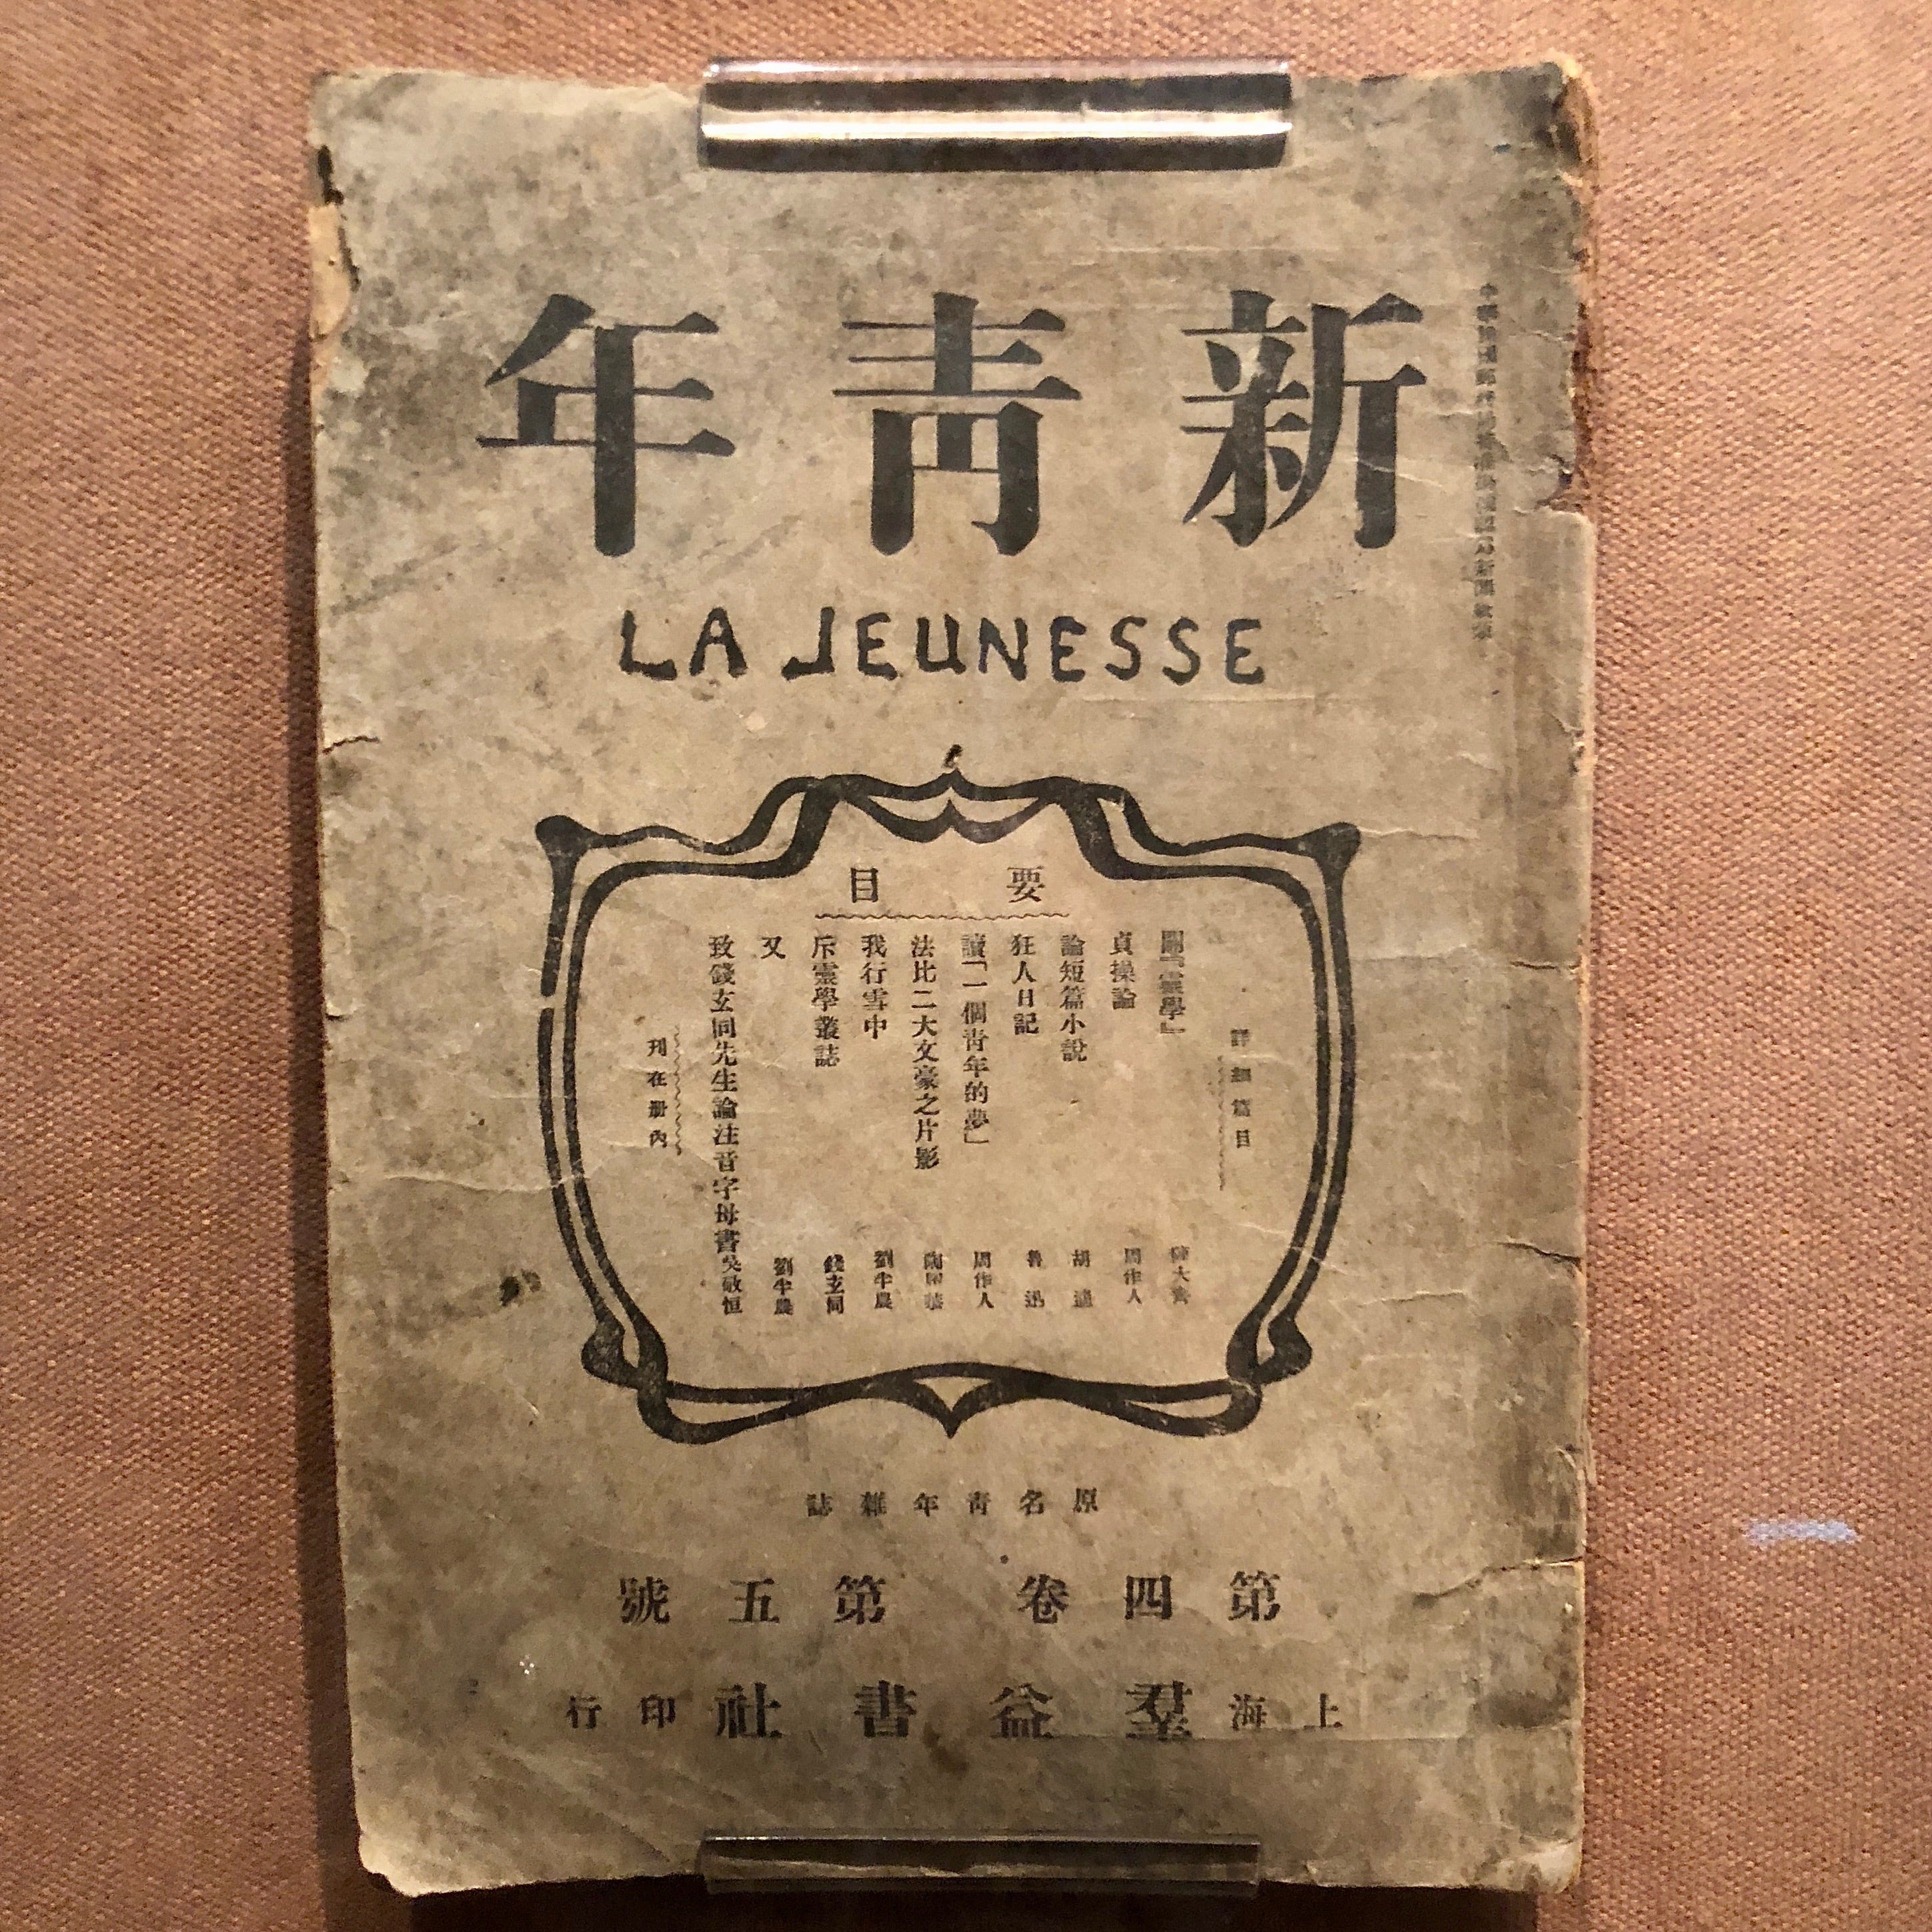 新靑年
LA JEUNESSE
要目
詳細篇目
闢『靈學』 陳大齊
貞操論 周作人
論短篇小說 胡適
狂人日記 魯迅
讀「一個靑年的夢」 周作人
法比二大文豪之片影 陶履恭
我行雪中 劉半農
斥靈學叢誌 錢玄同
又 劉半農
致錢玄同先生論注音字母書 吳敬恒
刊在册內
原名靑年雜誌
第四卷 第五號
上海羣益書社印行